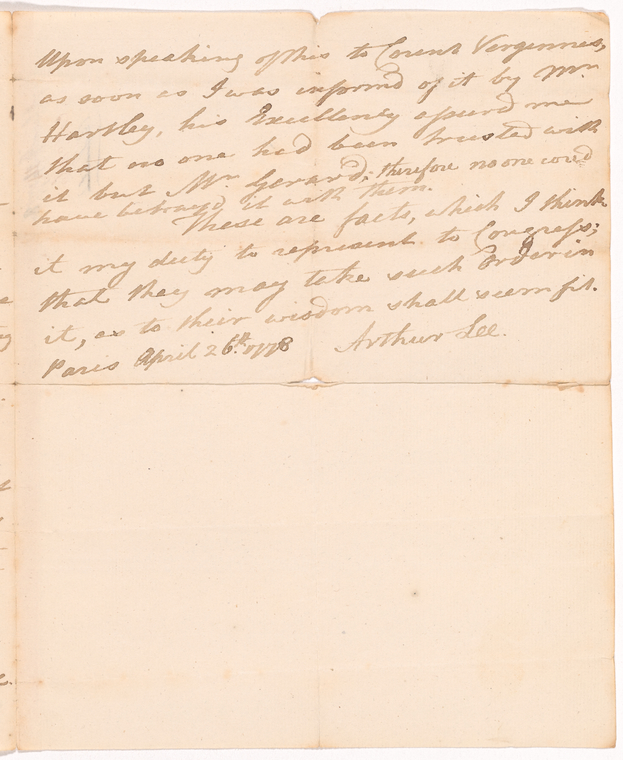 Upon speaking of this to Count Vergennes,
as soon as I was informd of it by Mr.
Hartley, his Excellency assurd me
that no one had been trusted with
it but Mr. Gerard; therefore no one coud
have betrayd it with them.
These are facts, which I think
it my duty to represent to Congress;
that they may take such Order in
it, as to their wisdom shall seem fit.
Paris April 26th. 1778 Arthur Lee.